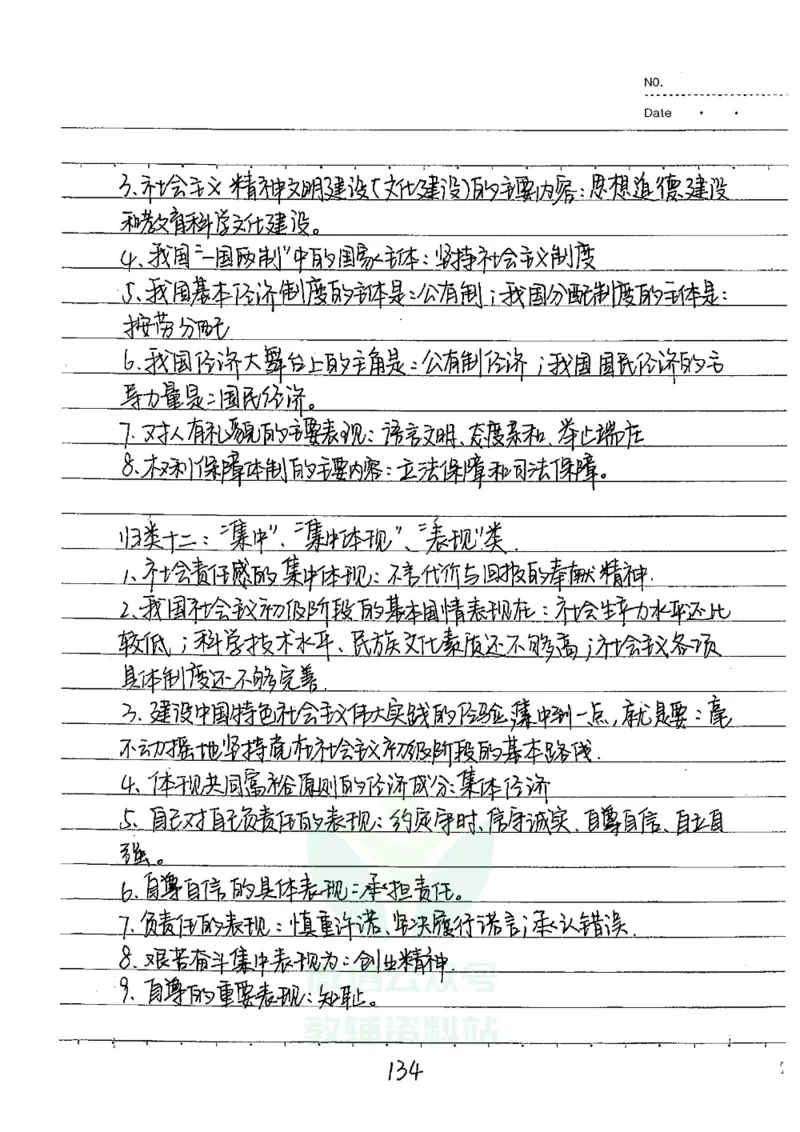 NO.
Date
3.社会主义精神文明建设(文化建设)的主要内容:思想道德建设
和教育科学文化建设。
4、我国"一国两制"中的国家主体:坚持社会主义制度
5、我国基本经济制度的主体是:公有制;我国分配制度的主体是:
按劳分配
6、我国经济大舞台上的主角是:公有制经济;我国国民经济的主
导力量是:国民经济。
7、对人有礼貌的主要表现:语言文明、态度亲和、举止端庄
8、权利保障体制的主要内容:立法保障和司法保障。
归类十二:"集中"、"集中体现"、"表现"类.
1、社会责任感的集中体现:不言代价与回报的奉献精神.
2、我国社会主义初级阶段的基本国情表现在:社会生产力水平还比
较低;科学技术水平、民族文化素质还不够高;社会主义各项
具体制度还不够完善.
3、建设中国特色社会主义伟大实践的经验,集中到一点,就是要:毫
不动摇地坚持党在社会主义初级阶段的基本路线.
4、体现共同富裕原则的经济成分:集体经济
5、自己对自己负责任的表现:约定守时、信守诚实、自尊自信、自立自
强。
6、自尊自信的具体表现:承担责任。
7、负责任的表现:慎重许诺、坚决履行诺言;承认错误.
8、艰苦奋斗集中表现为:创业精神.
9、自尊的重要表现:知耻。
微信公众号
教辅资料站
134